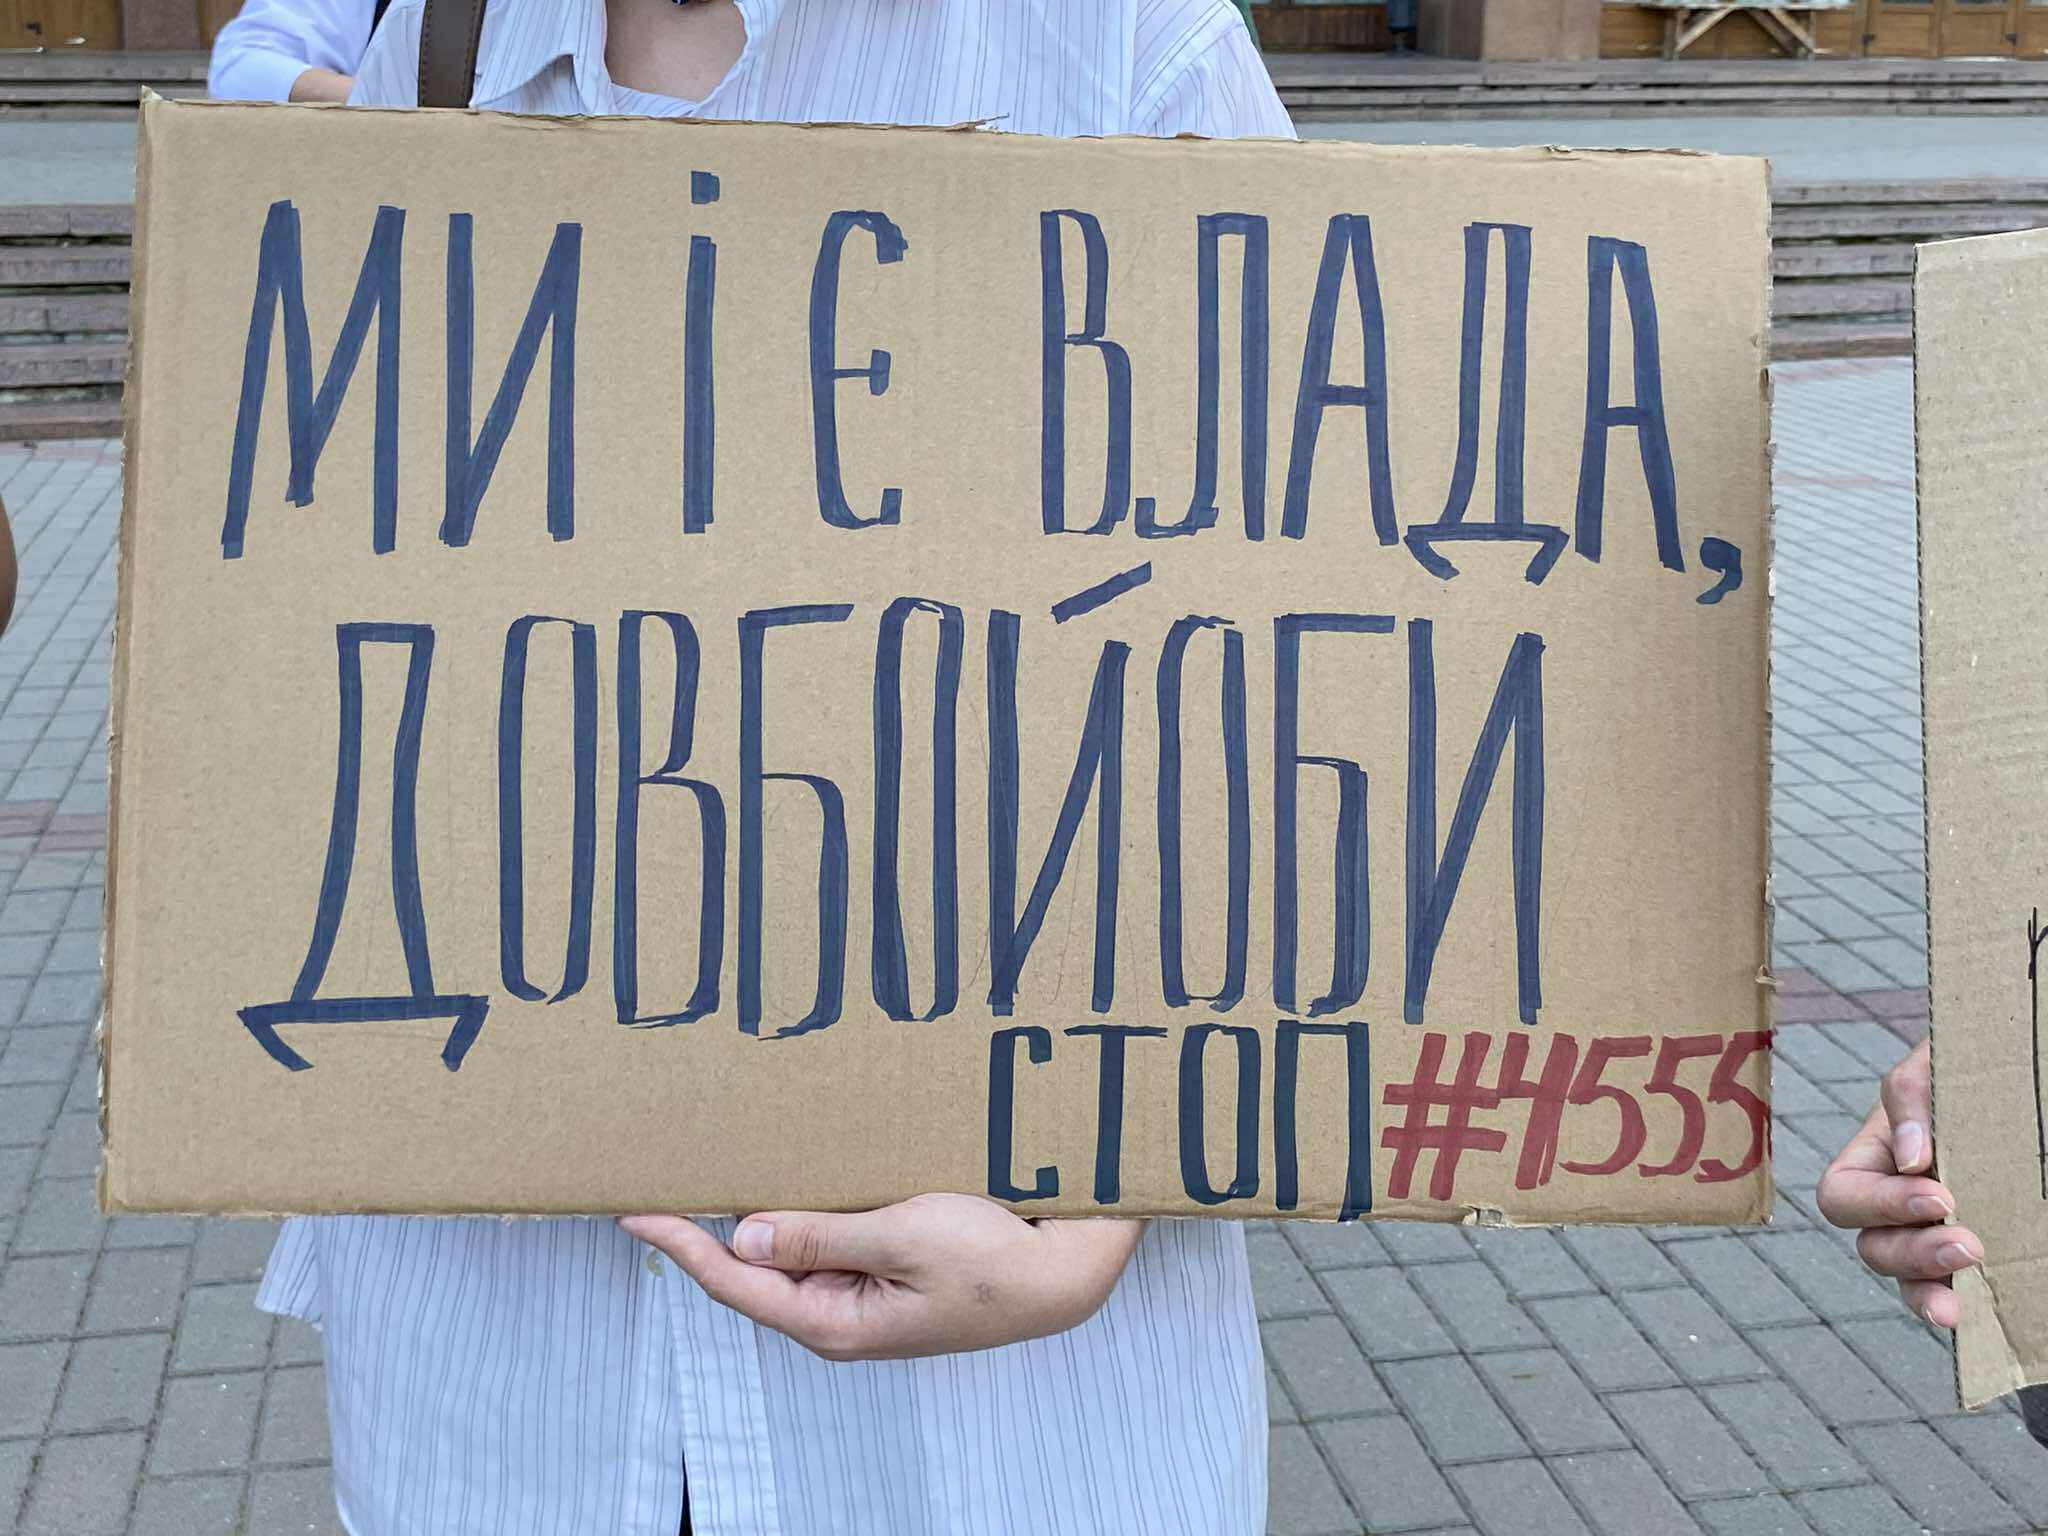 МИ І Є ВЛАДА,
ДОВБОЙОБИ
СТОП #4555